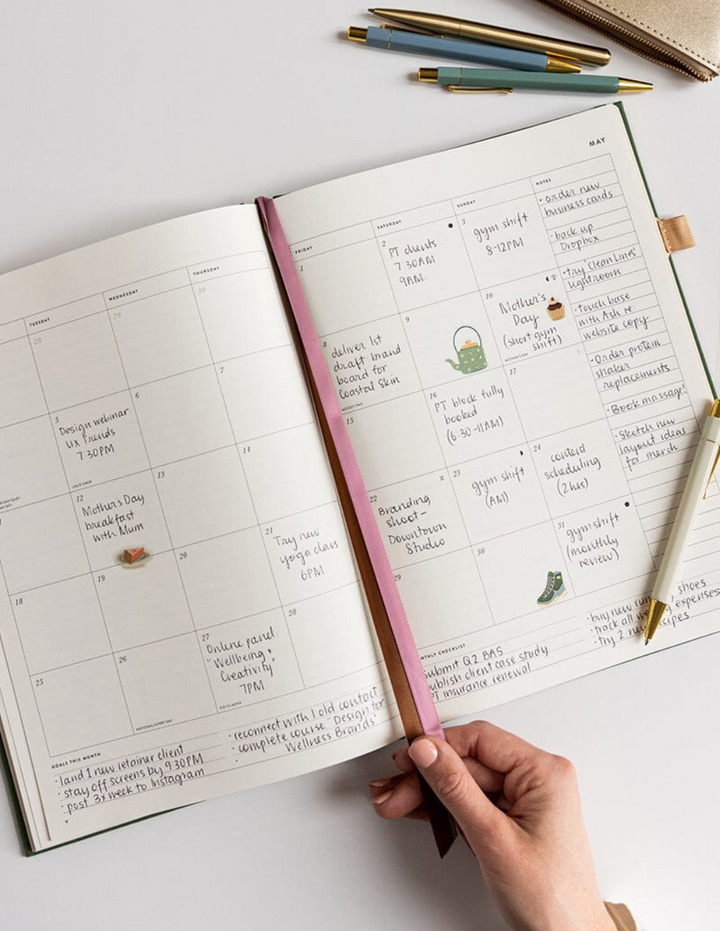 TUESDAY
WEDNESDAY
THURSDAY
28
29
30
5
Design webinar
UX Trends
7:30PM
6
7
12
Mother's Day
breakfast
with Mum
13
14
18
19
20
21
Try new
yoga class
6PM
25
26
NATIONAL SORRY DAY
27
Online panel
"Wellbeing +
Creativity"
7PM
28
GOALS THIS MONTH
· land 1 new retainer client
· stay off screens by 9:30PM
· post 3x week to Instagram
· reconnect with 1 old contact
· complete course "Design for
Wellness Brands"
MAY
FRIDAY
SATURDAY
SUNDAY
NOTES
1
2
PT clients
7:30AM
9AM
3
gym shift
8-12PM
8
deliver 1st
draft brand
board for
Coastal Skin
9
10
Mother's
Day
(short gym
shift)
MOTHER'S DAY
15
16
PT block fully
booked
(6:30-11AM)
17
22
Branding
shoot -
Downtown
Studio
23
gym shift
(AM)
24
content
scheduling
(2hrs)
29
30
31
gym shift
(monthly
review)
· order new
business cards
· back up
Dropbox
· try 'clean lines'
lightroom
· touch base
with Ash re
website copy
· Order protein
shaker
replacements
· Book massage!
· sketch new
layout ideas
for merch
MONTHLY CHECKLIST
submit Q2 BAS
publish client case study
PT insurance renewal
· buy new shoes
· track all expenses
· try 2 new recipes